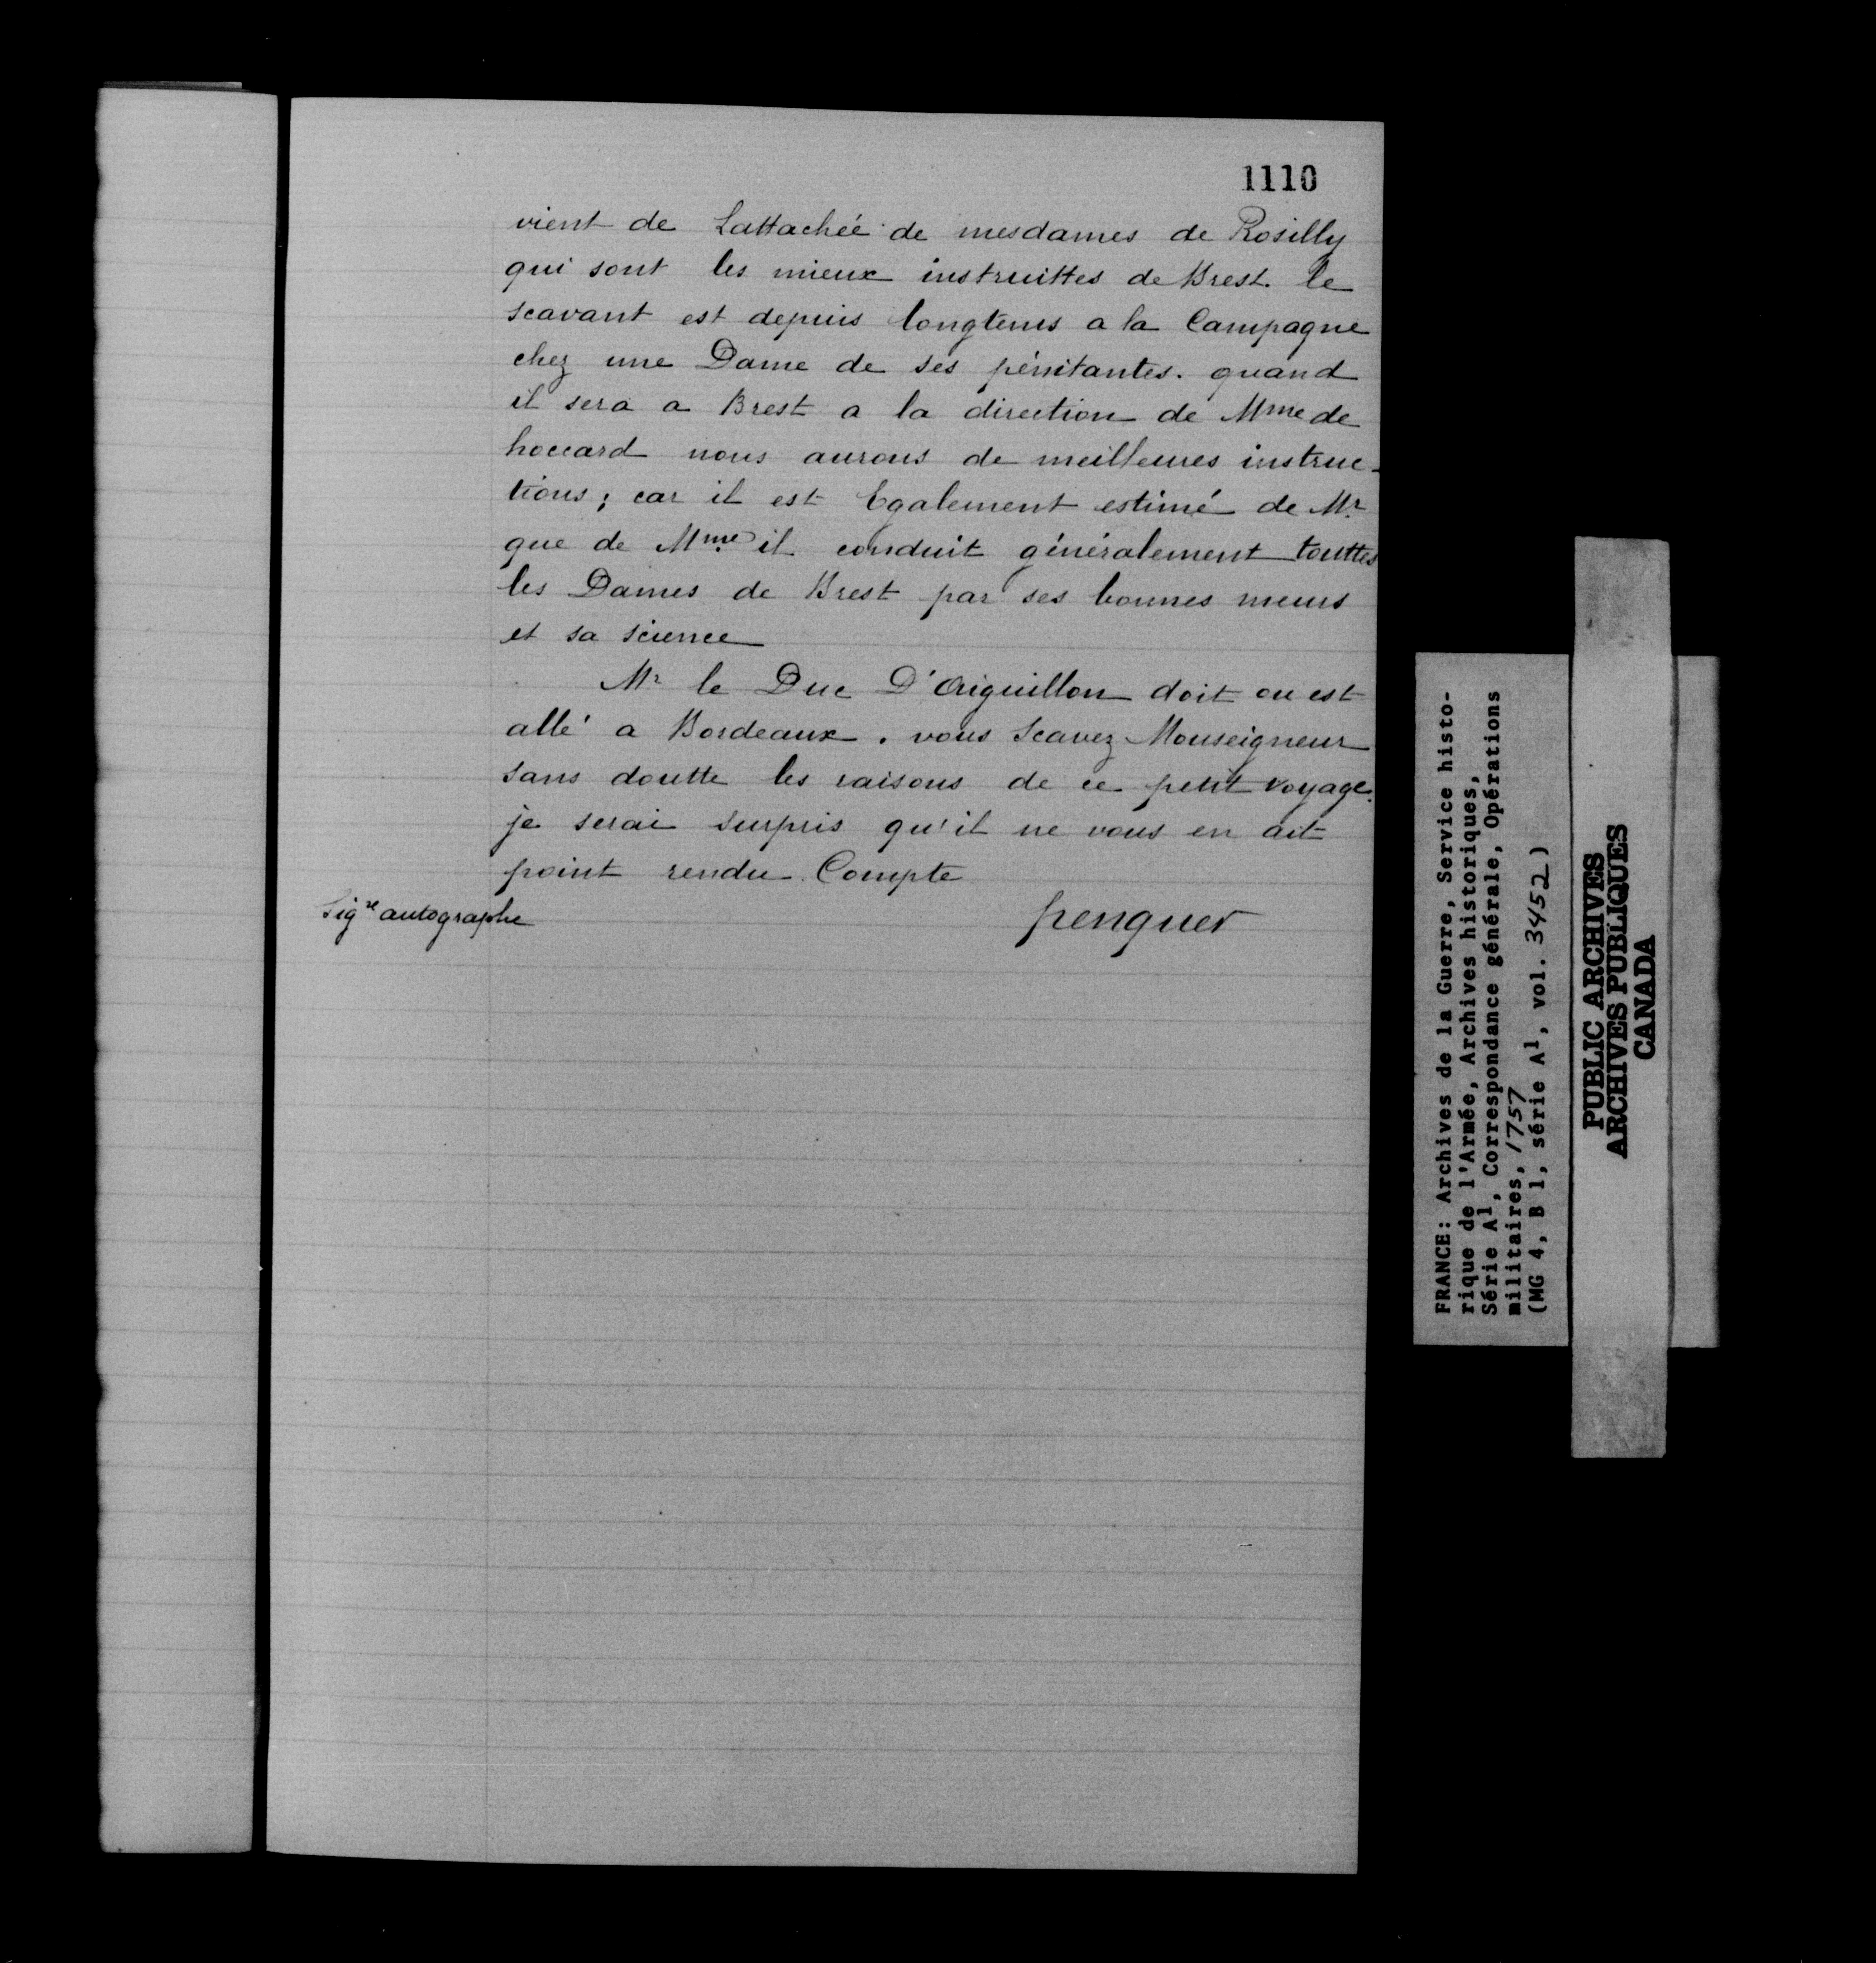 1110
vient de Lattachée de mesdames de Rosilly
qui sont les mieux instruittes de Brest. le
scavant est depuis longtems a la Campagne
chez une Dame de ses pénitantes. quand
il sera a Brest a la direction de Mme de
hoccard nous aurons de meilleures instruc-
tions; car il est Egalement estimé de Mr
que de Mme il conduit généralement touttes
les Dames de Brest par ses bonnes meurs
et sa science
Mr le Duc D'Aiguillon doit ou est
allé a Bordeaux. vous scavez Monseigneur
sans doutte les raisons de ce petit voyage.
je serai surpris qu'il ne vous en ait
point rendu Compte
Sigre autographe
penquer
FRANCE: Archives de la Guerre, Service histo-
rique de l'Armée, Archives historiques,
Série A1, Correspondance générale, Opérations
militaires, 1757
(MG 4, B 1, série A1, vol. 3452)
PUBLIC ARCHIVES
ARCHIVES PUBLIQUES
CANADA